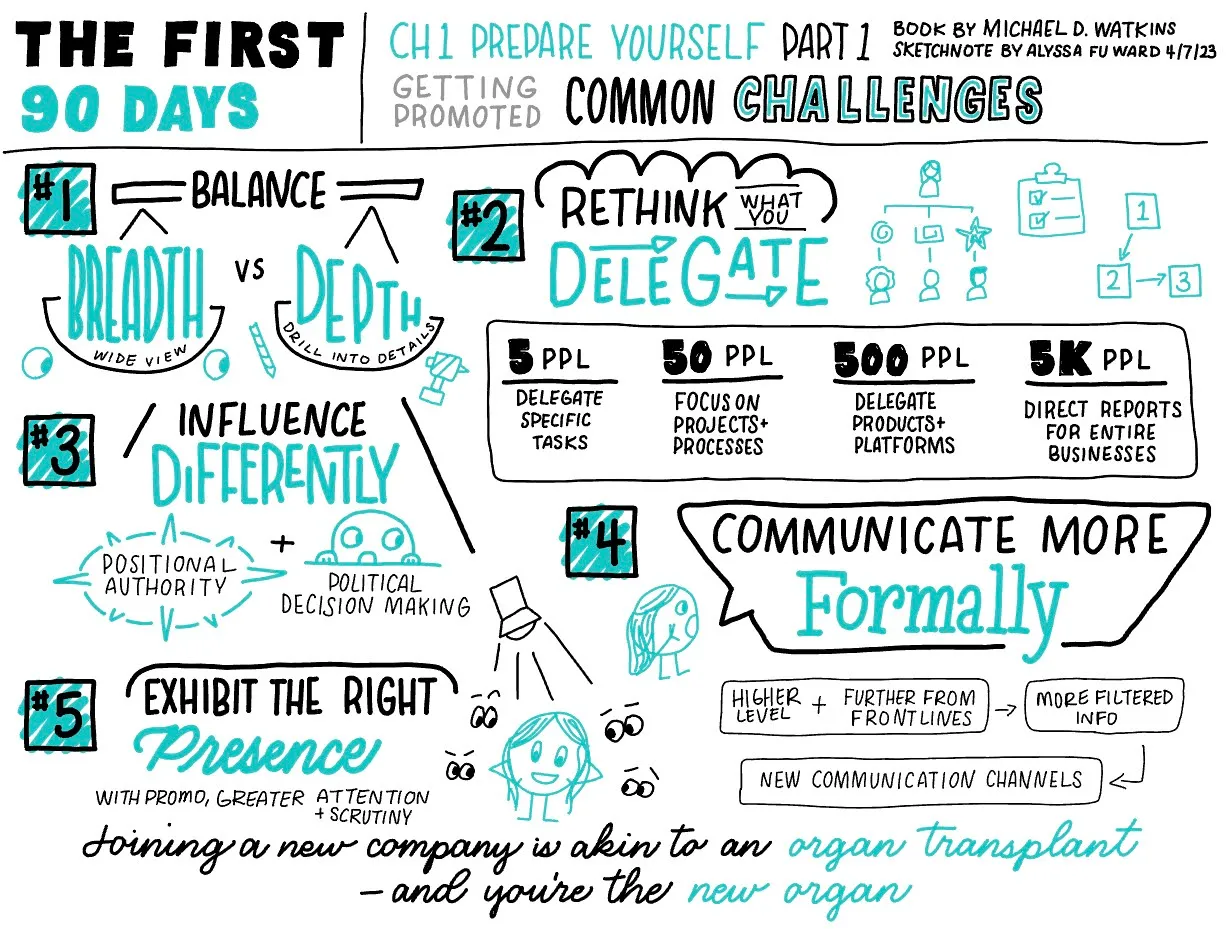 THE FIRST
90 DAYS
CH 1 PREPARE YOURSELF PART 1
BOOK BY MICHAEL D. WATKINS
SKETCHNOTE BY ALYSSA FU WARD 4/7/23
GETTING
PROMOTED
COMMON CHALLENGES
#1
BALANCE
BREADTH
WIDE VIEW
VS
DEPTH
DRILL INTO DETAILS
#2
RETHINK WHAT
YOU
DELEGATE
1
2
3
5 PPL
DELEGATE
SPECIFIC
TASKS
50 PPL
FOCUS ON
PROJECTS+
PROCESSES
500 PPL
DELEGATE
PRODUCTS+
PLATFORMS
5K PPL
DIRECT REPORTS
FOR ENTIRE
BUSINESSES
#3
INFLUENCE
DIFFERENTLY
POSITIONAL
AUTHORITY
+
POLITICAL
DECISION MAKING
#4
COMMUNICATE MORE
Formally
HIGHER
LEVEL
+
FURTHER FROM
FRONTLINES
MORE FILTERED
INFO
NEW COMMUNICATION CHANNELS
#5
EXHIBIT THE RIGHT
Presence
WITH PROMO, GREATER ATTENTION
+ SCRUTINY
Joining a new company is akin to an organ transplant
– and you're the new organ